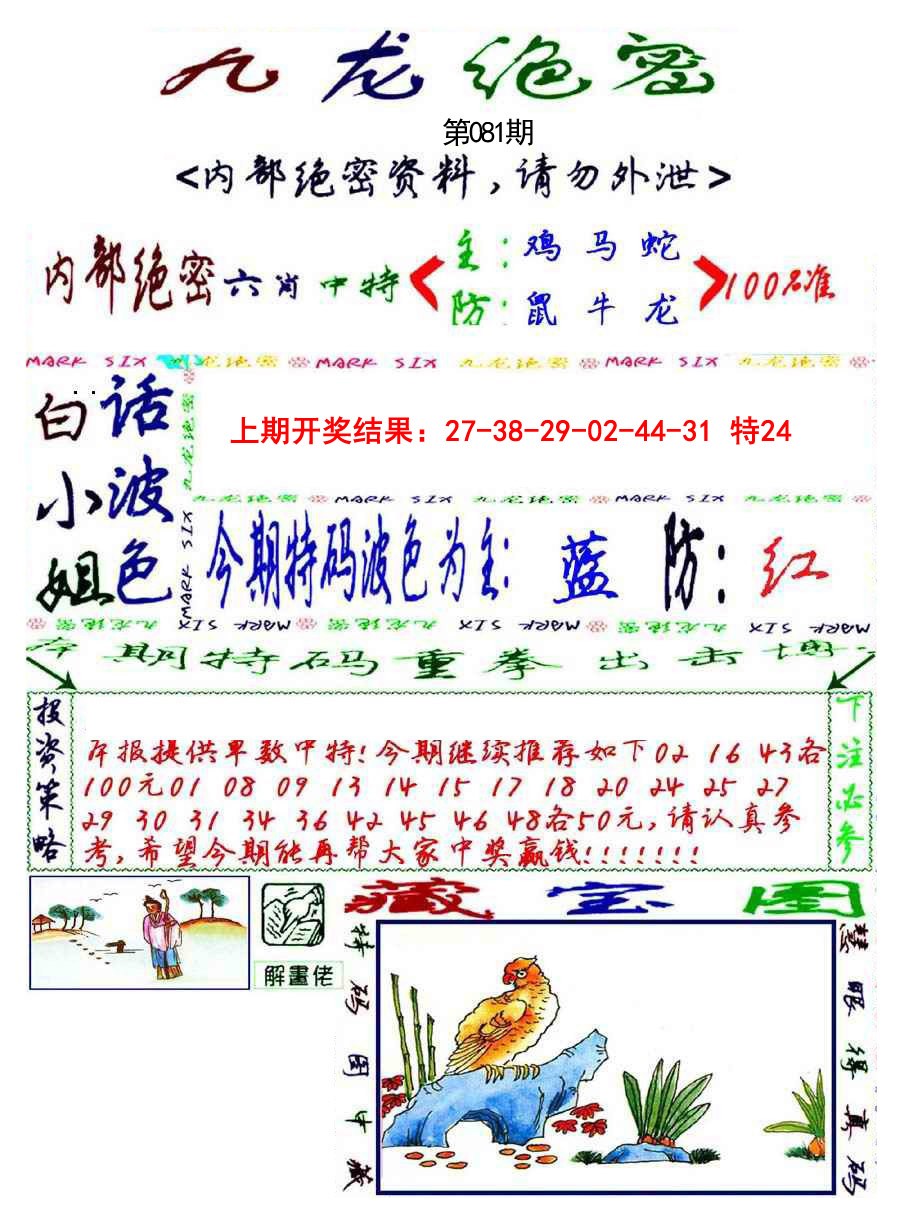 九龙绝密
第081期
<内部绝密资料,请勿外泄>
内部绝密六肖中特
主:鸡 马 蛇
防:鼠 牛 龙
100%准
MARK SIX 九龙绝密 MARK SIX 九龙绝密 MARK SIX 九龙绝密
白话
小波
姐色
九龙绝密
MARK SIX
上期开奖结果：27-38-29-02-44-31 特24
九龙绝密 MARK SIX 九龙绝密 MARK SIX 九龙绝密
今期特码波色为主: 蓝 防: 红
九龙绝密 MARK SIX MARK SIX 九龙绝密 MARK SIX 九龙绝密 MARK SIX
期特码重拳出击
投资策略
本报提供单数中特!今期继续推荐如下02 16 43各
100元01 08 09 13 14 15 17 18 20 24 25 27
29 30 31 34 36 42 45 46 48各50元,请认真参
考,希望今期能再帮大家中奖赢钱!!!!!!!
下注必参
藏宝图
解畫佬
特码图中藏
慧眼得真码